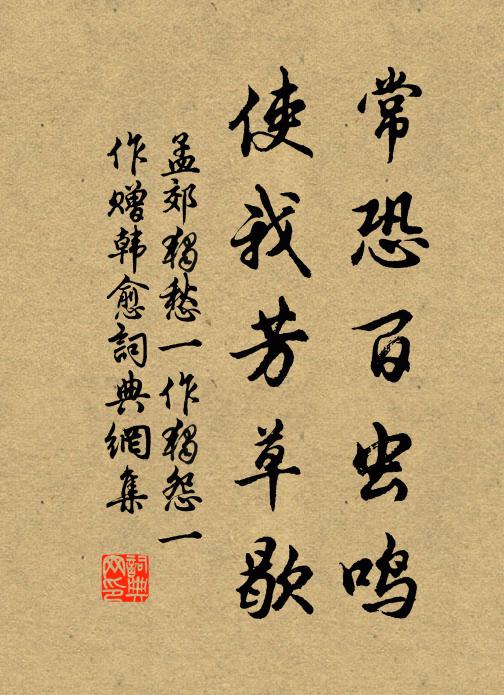 常恐百虫鸣
使我芳草歇
孟郊独愁一作独怨一
作赠韩愈词典網集
詞典
网印